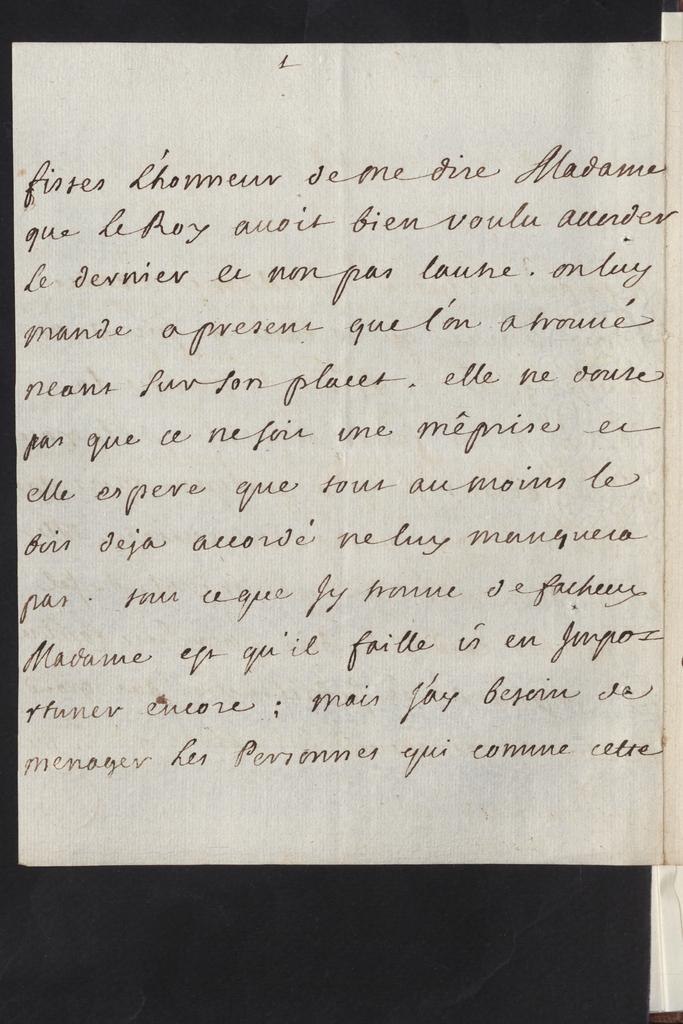 1
fistes L'honneur de me dire Madame
que Le Roy avoit bien voulu accorder
Le dernier et non pas lautre. on luy
mande apresent que l'on a trouvé
neant sur son placet. elle ne doute
pas que ce ne soit une méprise et
elle espere que tout au moins le
bois deja accordé ne luy manquera
pas. tout ce que jy trouve de facheux
Madame est qu'il faille en Impo=
rtuner encore; mais j'ay besoin de
menager Les Personnes qui comme cette